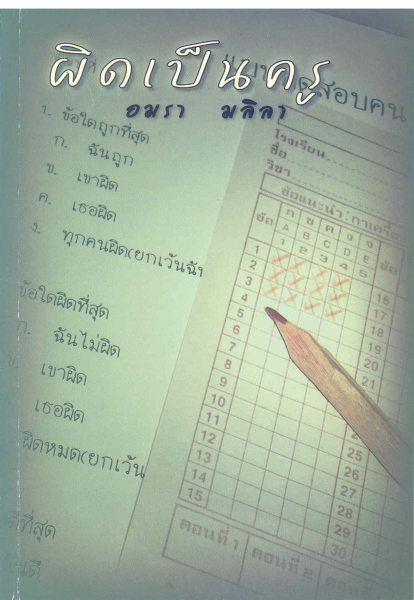 ผิดเป็นครู
อมรา มลิลา
สอบคน
๑. ข้อใดถูกที่สุด
ก. ฉันถูก
ข. เขาผิด
ค. เธอผิด
ง. ทุกคนผิด(ยกเว้นฉัน
ข้อใดผิดที่สุด
ก. ฉันไม่ผิด
เขาผิด
เธอผิด
ผิดหมด(ยกเว้น
ที่สุด
โรงเรียน
ชื่อ
วิชา
ข้อแนะนำ : กาเครื่อ
ข้อ ก ข ค ง จ ข้อ
A B C D E
1 2 3 4 5
1 16
2 17
3 18
4 19
5 20
6 21
7
8
9
10
11
12 27
13 28
14 29
15 30
ตอนที่ 1 ตอนที่ 2 ตอ